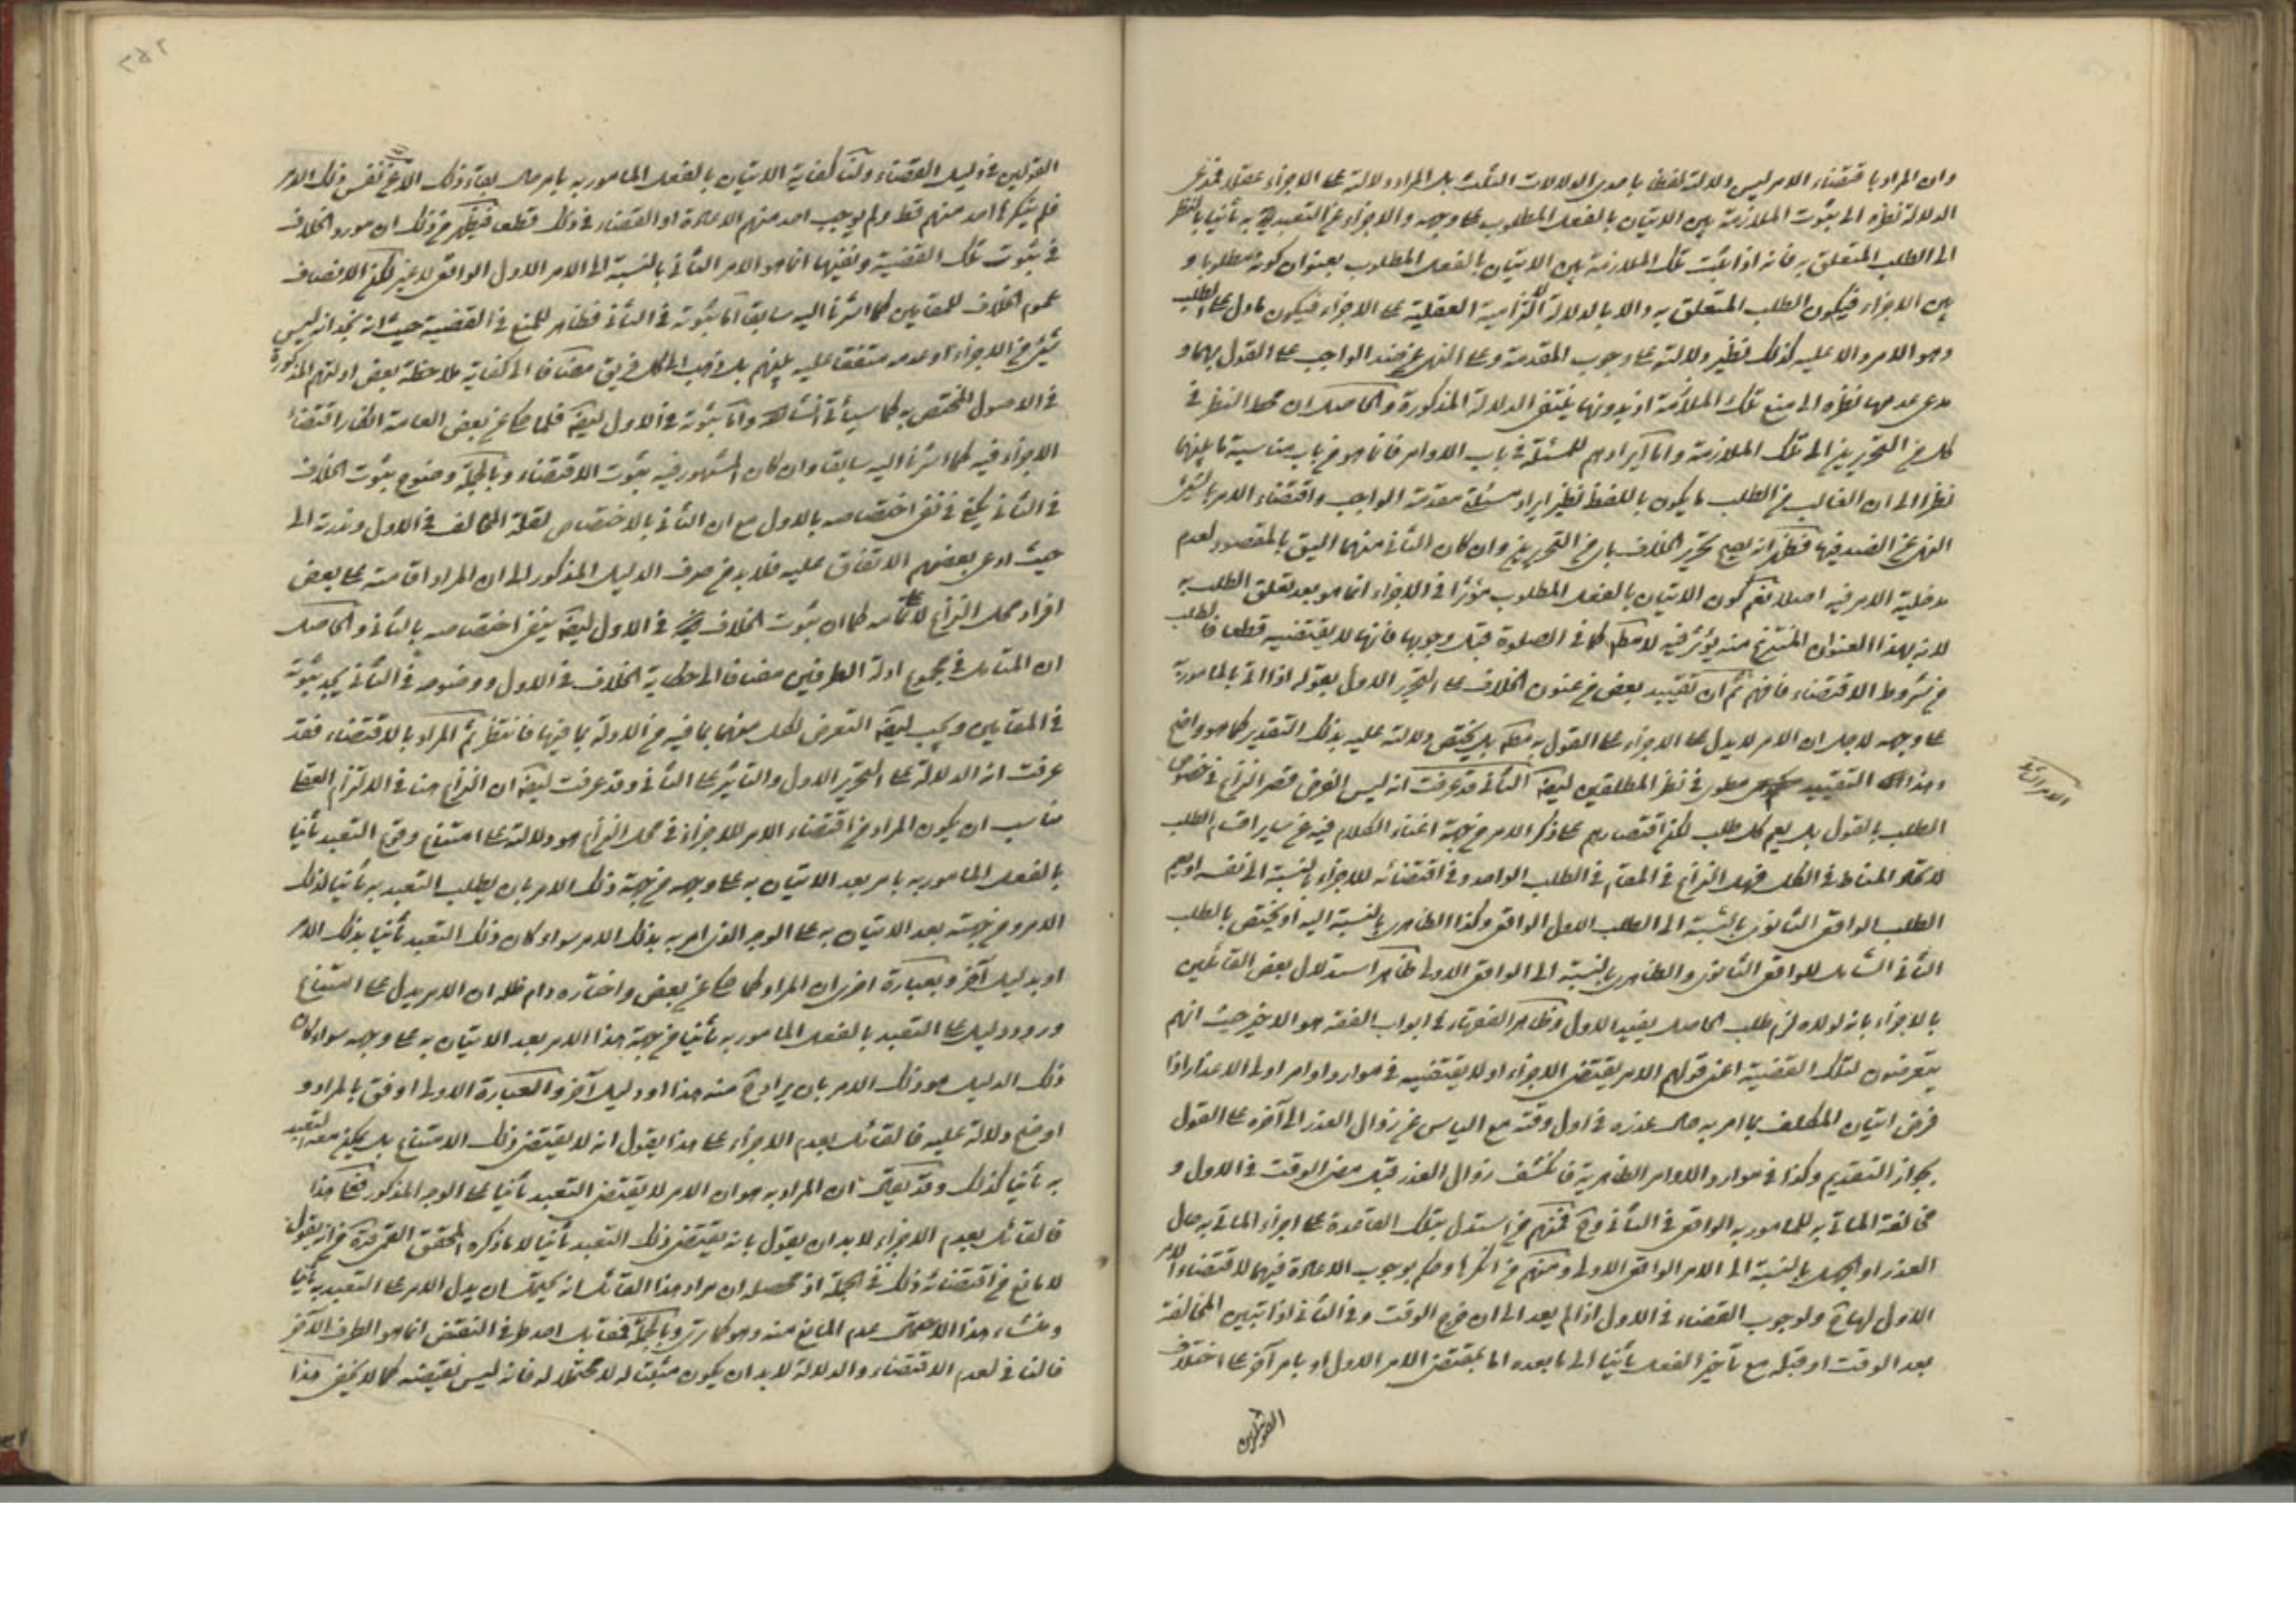 وان المراد باقتضاء الامر ليس دلالته لفظا باحدى الدلالات الثلث بل المراد دلالته على الاجزاء عقلا فمدعى
الدلالة نظره الى ثبوت الملازمة بين الاتيان بالفعل المطلوب على وجهه والاجزاء عن التعبد به ثانيا بالنظر
الى الطلب المتعلق به فانه اذا ثبت تلك الملازمة بين الاتيان بالفعل المطلوب بعنوان كونه مطلوبا و
بين الاجزاء فيكون الطلب المتعلق به دالا بالدلالة الالتزامية العقلية على الاجزاء فيكون ما دل على الطلب
وهو الامر دالا عليه كذلك نظير دلالته على وجوب المقدمة وعلى النهى عن ضد الواجب على القول بهما و
مدعى عدمها نظره الى منع تلك الملازمة اذ بدونها ينتفى الدلالة المذكورة والحاصل ان محط النظر فى
كل من التحريرين الى تلك الملازمة واما ايرادهم للمسئلة فى باب الاوامر فانما هو من باب مناسبة ما بينهما
نظرا الى ان الغالب من الطلب ما يكون باللفظ نظير ايراد مسئلة مقدمة الواجب واقتضاء الامر بالشئ
النهى عن الضد فيها فظهر انه يصح تحرير الخلاف باى من التحريرين وان كان الثانى منهما اليق بالمقصود لعدم
مدخلية الامر فيه اصلا نعم كون الاتيان بالفعل المطلوب مؤثرا فى الاجزاء انما هو بعد تعلق الطلب به
لانه بهذا العنوان المنتزع منه يؤثر فيه لا مطلقا كما فى الصلوة قبل وجوبها فانها لا يقتضيه قطعا فالطلب
من شروط الاقتضاء فافهم ثم ان تقييد بعض من عنون الخلاف على التحرير الاول بقوله اذا اتى بالمامور به
على وجهه لاجل ان الامر لا يدل على الاجزاء على القول به مطلقا بل يختص دلالته عليه بذلك التقدير كما هو واضح
وهذا التقييد مطوى فى نظر المطلقين ايضا الثانى قد عرفت انه ليس الغرض قصر النزاع فى خصوص
الطلب بالقول بل يعم كل طلب لكن اقتصارهم على ذكر الامر من جهة اغناء الكلام فيه عن ساير اقسام الطلب
لاتحاد المناط فى الكل فهل النزاع فى المقام فى الطلب الواحد وفى اقتضائه للاجزاء بالنسبة الى نفسه او يعم
الطلب الواقعى الثانوى بالنسبة الى الطلب الاول الواقعى وكذا الظاهرى بالنسبة اليه او يختص بالطلب
الثانى الشامل للواقعى الثانوى والظاهرى بالنسبة الى الواقعى الاولى ظاهر استدلال بعض القائلين
بالاجزاء بانه لولاه لزم طلب الحاصل يفيد الاول وظاهر الفقهاء فى ابواب الفقه هو الاخير حيث انهم
يتعرضون لتلك القضية اعنى قولهم الامر يقتضى الاجزاء او لا يقتضيه فى موارد اوامر اولى الاعذار اذا
فرض اتيان المكلف بما امر به حال عذره فى اول وقته مع الياس عن زوال العذر الى آخره على القول
بجواز التقديم وكذا فى موارد الاوامر الظاهرية فانكشف زوال العذر قبل مضى الوقت فى الاول و
مخالفة الماتى به للمامور به الواقعى فى الثانى وح فمنهم من استدل بتلك القاعدة على اجزاء الماتى به حال
العذر او الجهل بالنسبة الى الامر الواقعى الاولى ومنهم من انكرها وحكم بوجوب الاعادة فيهما لاقتضاء الامر
الاول لها ح ولوجوب القضاء فى الاول اذا لم يعد الى ان خرج الوقت وفى الثانى اذا تبين المخالفة
بعد الوقت او قبله مع تاخير الفعل ثانيا الى ما بعده اما بمقتضى الامر الاول او بامر آخر على اختلاف
القولين
القولين فى دليل القضاء ولنا كفاية الاتيان بالفعل المامور به بامر حال بقاء ذلك الامر عن نفس ذلك الامر
فلم ينكرها احد منهم قط ولم يوجب احد منهم الاعادة او القضاء فى ذلك قطعا فيظهر من ذلك ان مورد الخلاف
فى ثبوت تلك القضية ونفيها انما هو الامر الثانى بالنسبة الى الامر الاول الواقعى لا غير لكن الانصاف
عموم الخلاف للمقامين كما اشرنا اليه سابقا اما ثبوته فى الثانى فظاهر للمتتبع فى القضية حيث انه يجد انه ليس
شئ من الاجزاء او عدمه متفقا عليه بينهم بل ذهب الى كل فريق مضافا الى كفاية ملاحظة بعض ادلتهم المذكورة
فى الاصول المختص به كما سيأتى انشاء الله واما ثبوته فى الاول ايضا فلما حكى عن بعض العامة انكار اقتضاء
الاجزاء فيه كما اشرنا اليه سابقا وان كان المشهور فيه ثبوت الاقتضاء وبالجملة وضوح ثبوت الخلاف
فى الثانى يكفى فى نفى اختصاصه بالاول مع ان الثانى بالاختصاص لقلة المخالف فى الاول وندرته الى
حيث ادعى بعضهم الاتفاق عليه فلا بد من صرف الدليل المذكور الى ان المراد اقامته على بعض
افراد محل النزاع لا تمامه كما ان ثبوت الخلاف فى الاول ايضا ينفى اختصاصه بالثانى والحاصل
ان المتامل فى مجموع ادلة الطرفين مضافا الى حكاية الخلاف فى الاول ووضوحه فى الثانى يجد ثبوته
فى المقامين ويجب ايضا التعرض لكل منهما بما فيه من الادلة بما فيها فانتظر ثم المراد بالاقتضاء فقد
عرفت انه الدلالة على التحرير الاول والتاثير على الثانى وقد عرفت ايضا ان النزاع هنا فى الالتزام العقلى
فناسب ان يكون المراد من اقتضاء الامر للاجزاء فى محل النزاع هو دلالته على امتناع وقوع التعبد ثانيا
بالفعل المامور به بامر بعد الاتيان به على وجهه من جهة ذلك الامر بان يطلب التعبد به ثانيا لذلك
الامر ومن جهته بعد الاتيان به على الوجه الذى امر به بذلك الامر سواء كان ذلك التعبد ثانيا بذلك الامر
او بدليل آخر وبعبارة اخرى ان المراد كما حكى عن بعض واختاره دام ظله ان الامر يدل على امتناع
ورود دليل على التعبد بالفعل المامور به ثانيا من جهة هذا الامر بعد الاتيان به على وجهه سواء كان
ذلك الدليل هو ذلك الامر بان يراد ح منه هذا او دليل آخر والعبارة الاولى اوفق بالمراد و
اوضح دلالة عليه فالقائل بعدم الاجزاء على هذا يقول انه لا يقتضى ذلك الامتناع بل يمكن معه التعبد
به ثانيا كذلك وقد يقال ان المراد به هو ان الامر لا يقتضى التعبد ثانيا على الوجه المذكور فعلى هذا
فالقائل بعدم الاجزاء لا بد ان يقول بانه يقتضى ذلك التعبد ثانيا لا ما ذكره المحقق القمى قده من انه يقول
لا مانع من اقتضائه ذلك فى الجملة اذ محصله ان مراد هذا القائل انه يحتمل ان يدل الامر على التعبد به ثانيا
ومنشاء هذا الاحتمال عدم المانع منه وهو كما ترى وبالجملة فمقابل احد طرفى النقيض انما هو الطرف الآخر
فالنافى لعدم الاقتضاء والدلالة لا بد ان يكون مثبتا له لا محتملا له فانه ليس نقيضه كما لا يخفى هذا